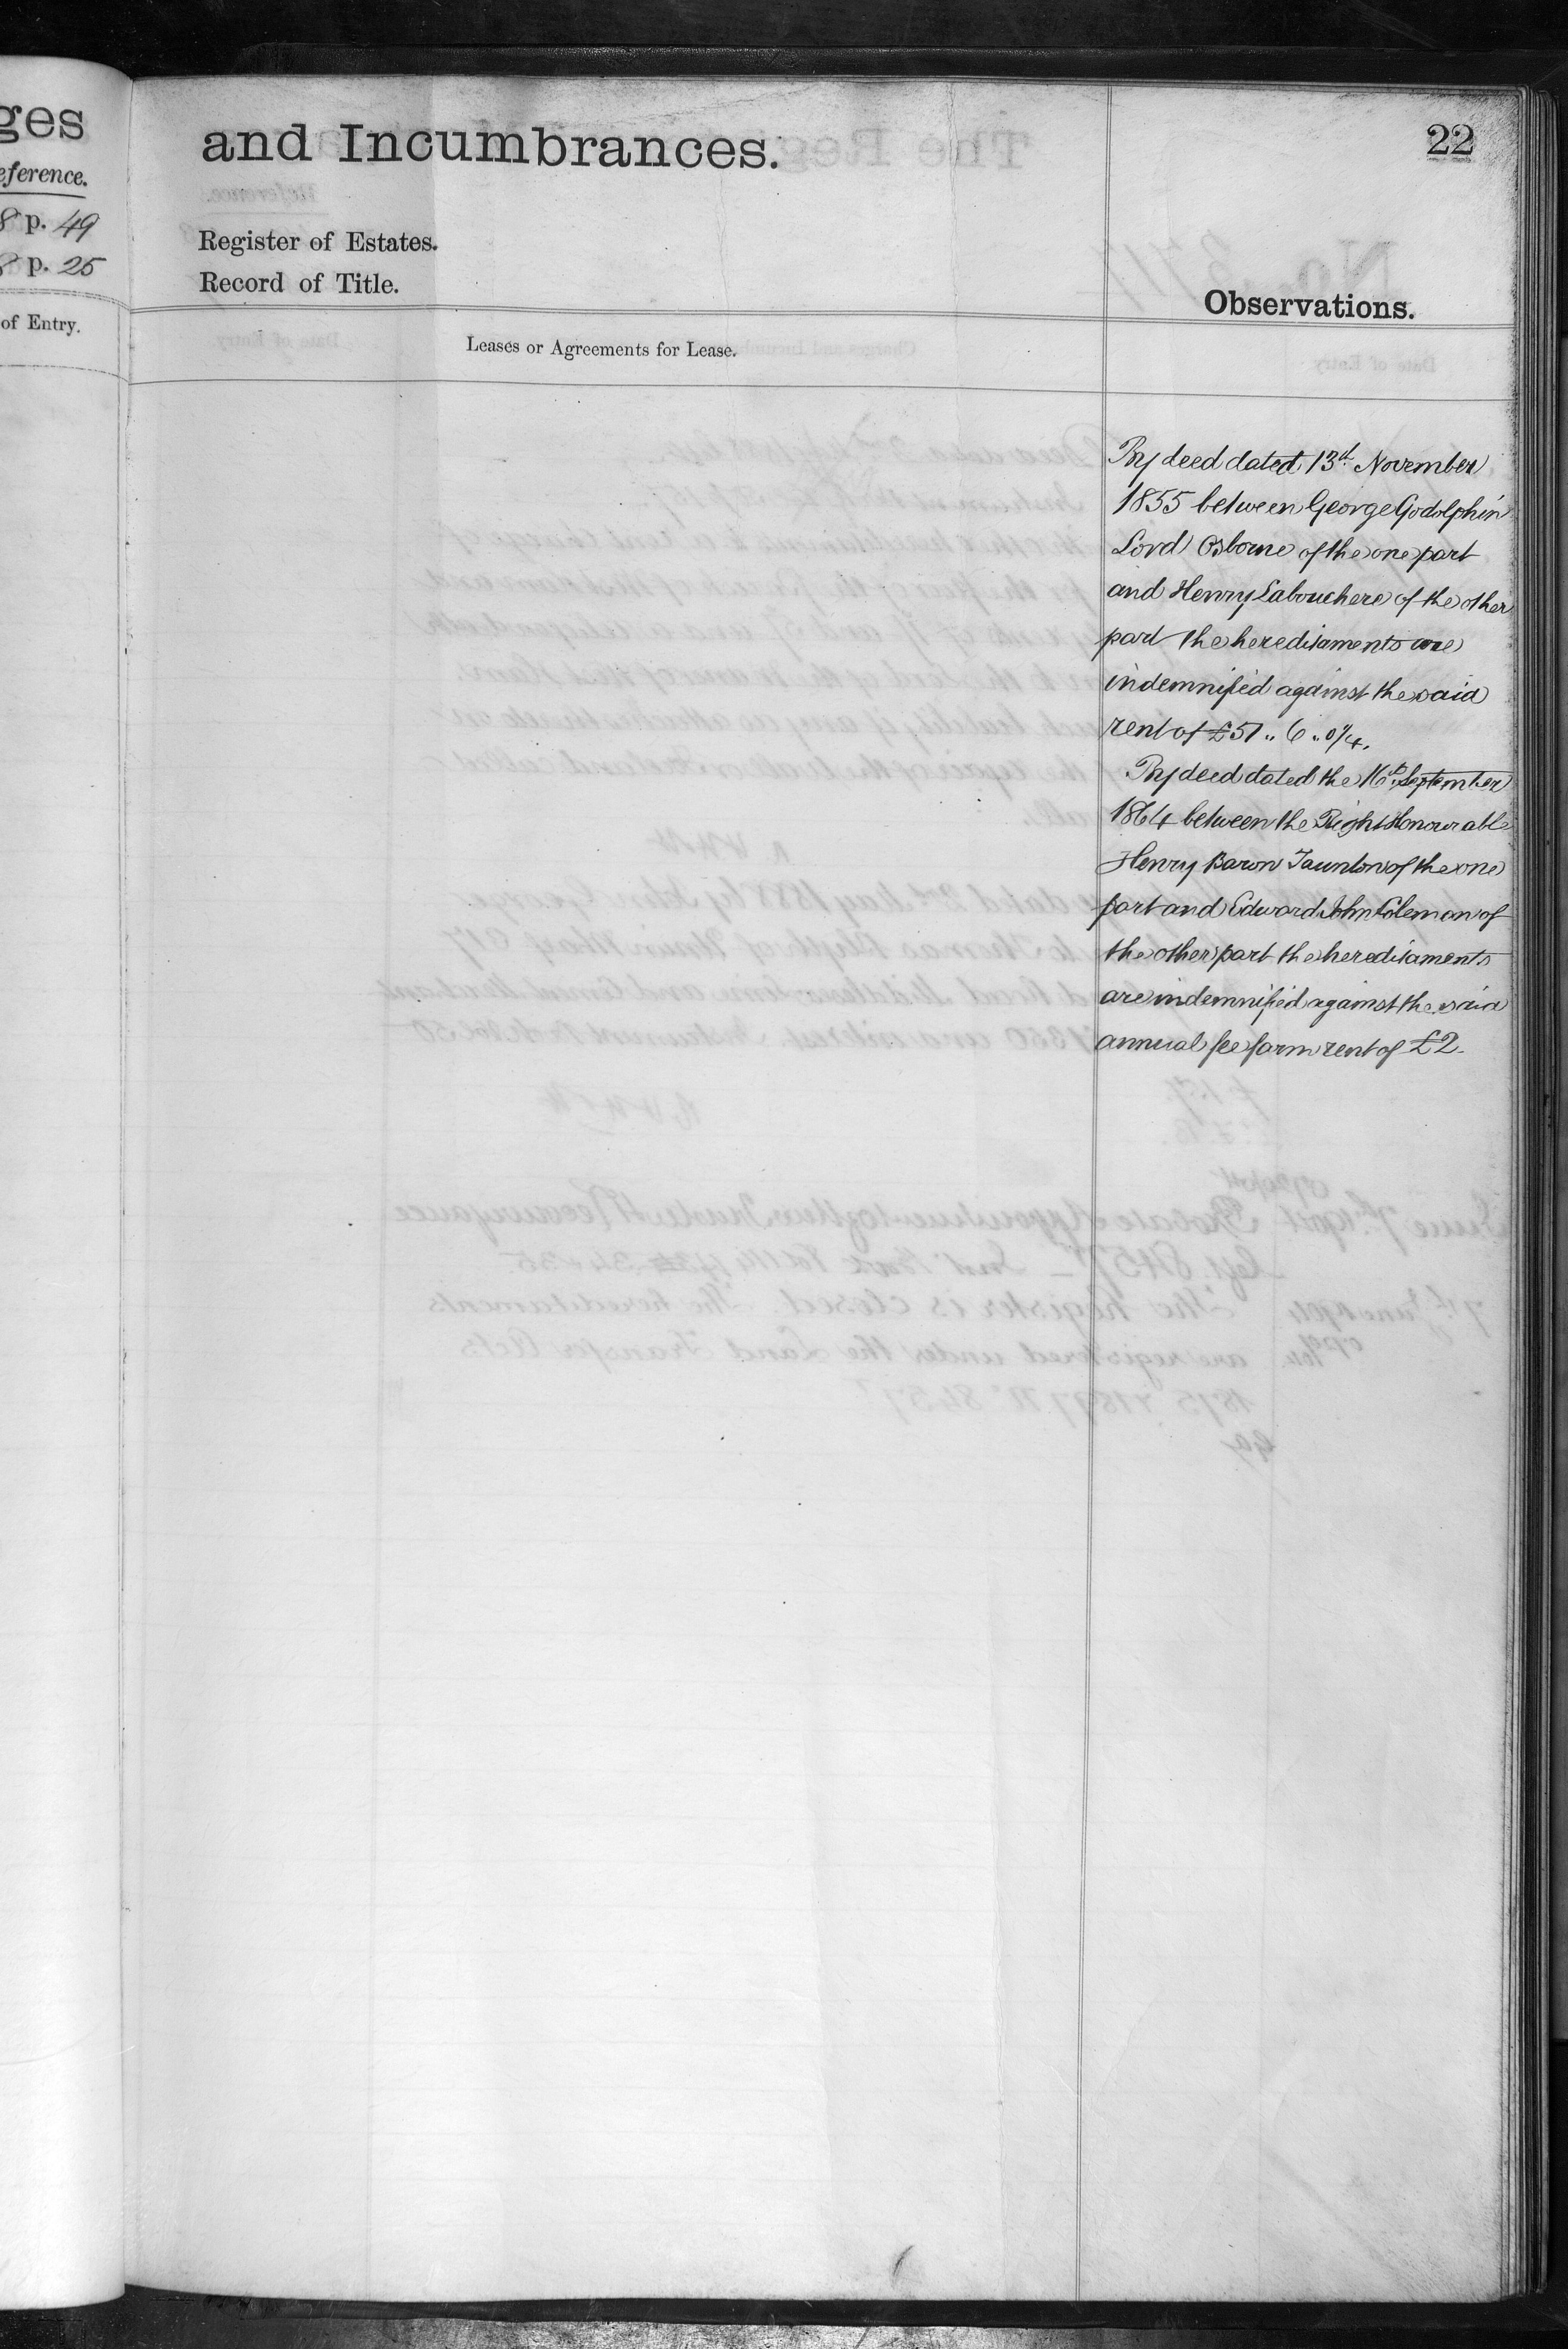 ges
eference.
8 p. 49
8 p. 25
of Entry.
and Incumbrances.
22
Register of Estates.
Record of Title.
Observations.
Leases or Agreements for Lease.
By deed dated 13th November
1855 between George Godolphin
Lord Osborne of the one part
and Henry Labouchere of the other
part the hereditaments are
indemnified against the said
rent of £51 " 6 " 0 1/4.
By deed dated the 16th September
1864 between the Right Honourable
Henry Baron Taunton of the one
part and Edward John Coleman of
the other part the hereditaments
are indemnified against the said
annual fee farm rent of £2.